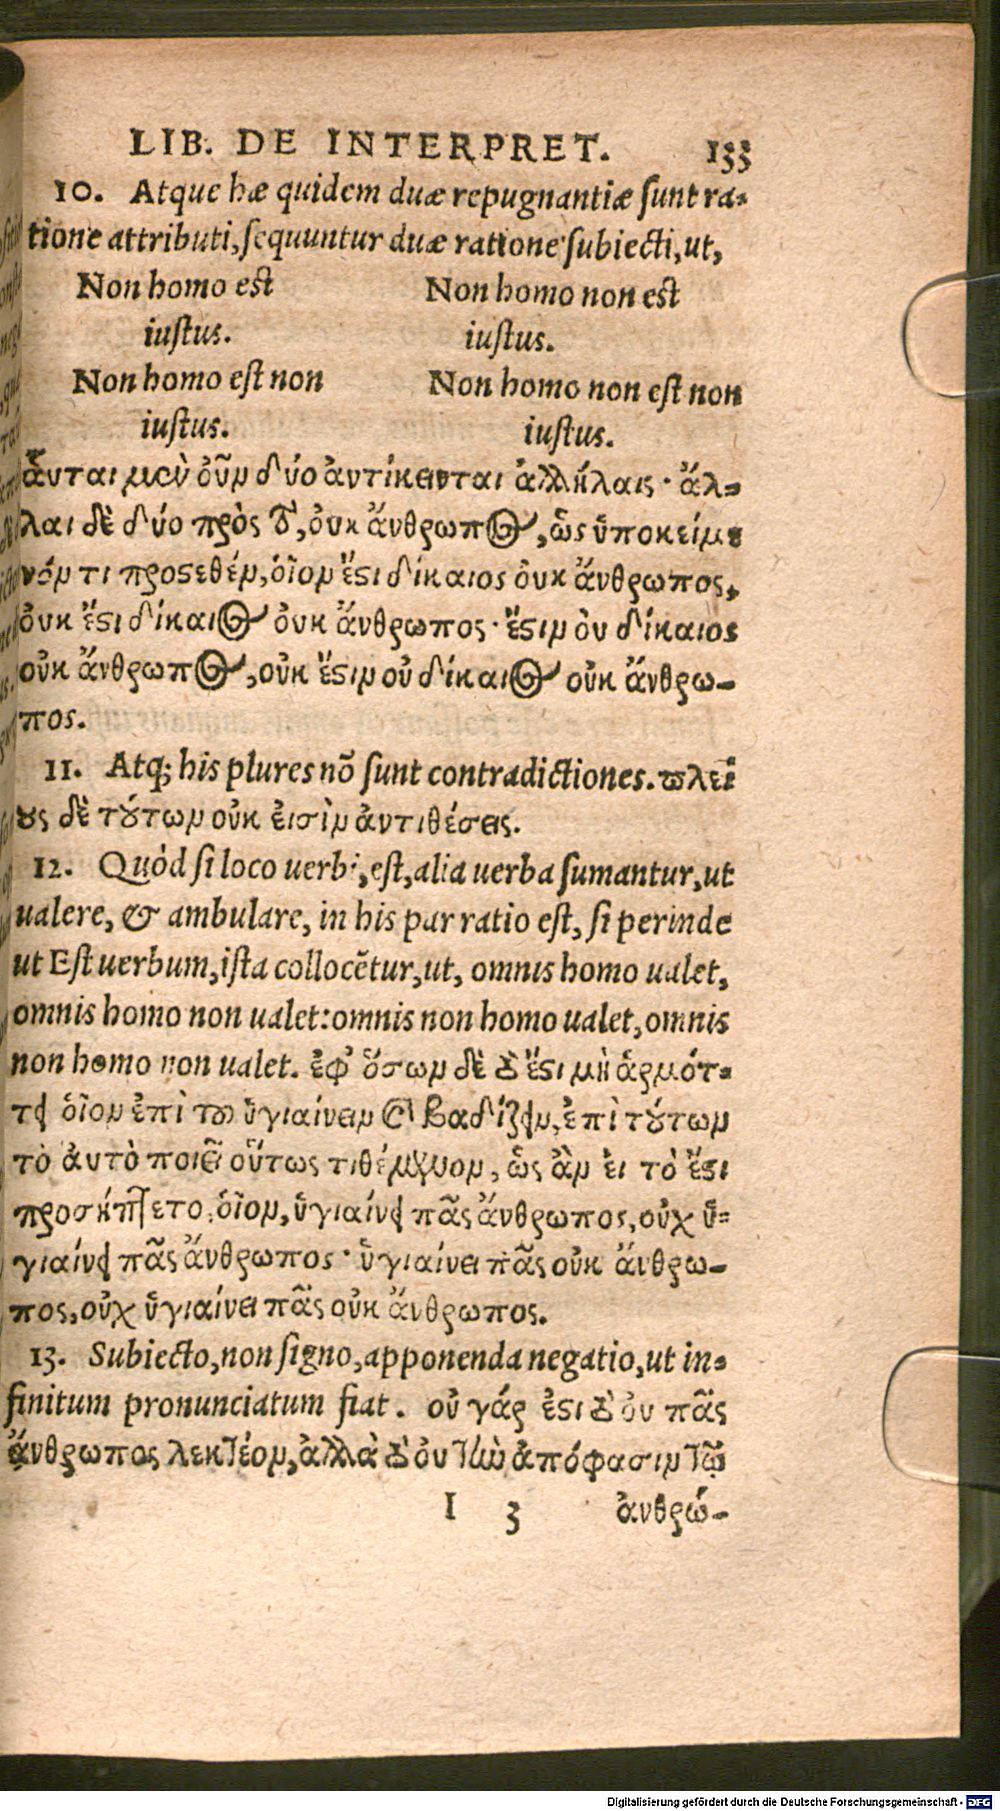 LIB. DE INTERPRET. 133
10. Atque hæ quidem duæ repugnantiæ sunt ra-
tione attributi, sequuntur duæ ratione subiecti, ut,
Non homo est Non homo non est
iustus. iustus.
Non homo est non Non homo non est non
iustus. iustus.
ἁυται μὲν ὀῦν δύο ἀντίκεινται ἀλλήλαις· ἄλ-
λαι δὲ δύο πρὸς τὸ, ὀυκ ἄνθρωπος, ὡς ὑποκείμε
νόν τι προστεθέν, ὁῖον ἔστι δίκαιος ὀυκ ἄνθρωπος,
ὀυκ ἔστι δίκαιος ὀυκ ἄνθρωπος· ἔστιν ὀυ δίκαιος
οὐκ ἄνθρωπος, οὐκ ἔστιν οὐ δίκαιος οὐκ ἄνθρω-
πος.
11. Atq; his plures nõ sunt contradictiones. πλεί
ους δὲ τούτων οὐκ ἐισὶν ἀντιθέσεις.
12. Quòd si loco uerbi, est, alia uerba sumantur, ut
ualere, & ambulare, in his par ratio est, si perinde
ut Est uerbum, ista collocẽtur, ut, omnis homo ualet,
omnis homo non ualet: omnis non homo ualet, omnis
non homo non ualet. ἐφ' ὅσων δὲ τὸ ἔστι μὴ ἁρμότ-
τει ὁῖον ἐπὶ τοῦ ὑγιαίνειν καὶ βαδίζειν, ἐπὶ τούτων
τὸ ἀυτὸ ποιεῖ οὕτως τιθέμενον, ὡς ἂν ἐι τὸ ἔστι
προσήπτετο, ὁῖον, ὑγιαίνει πᾶς ἄνθρωπος, οὐχ ὑ-
γιαίνει πᾶς ἄνθρωπος· ὑγιαίνει πᾶς οὐκ ἄνθρω-
πος, οὐχ ὑγιαίνει πᾶς οὐκ ἄνθρωπος.
13. Subiecto, non signo, apponenda negatio, ut in-
finitum pronunciatum fiat. οὐ γάρ ἐστι τὸ ὀυ πᾶς
ἄνθρωπος λεκτέον, ἀλλὰ τὸ ὀυ τὴν ἀπόφασιν τῷ
I 3 ἀνθρώ-
Digitalisierung gefördert durch die Deutsche Forschungsgemeinschaft - DFG